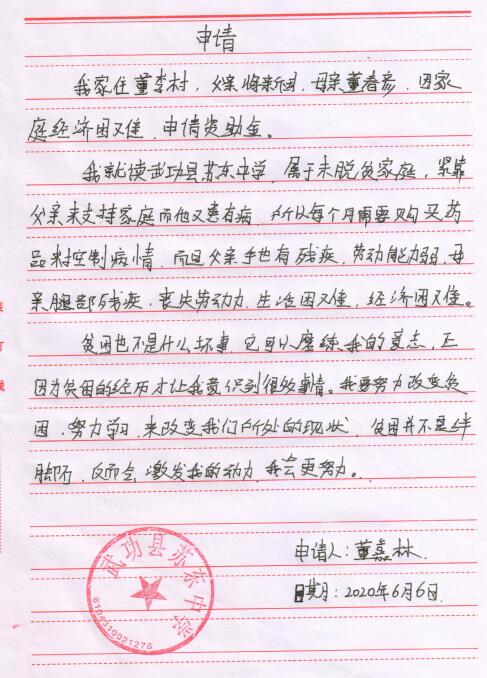 申请
我家住董李村，父亲 新团，母亲董春彦，因家
庭经济困难，申请资助金。
我就读武功县苏东中学，属于未脱贫家庭，紧靠
父亲来支持家庭而他又患有病，所以每个月需要购买药
品来控制病情，而且父亲手也有残疾，劳动能力弱，母
亲腿部残疾，丧失劳动力，生活困难，经济困难。
贫困也不是什么坏事，它可以磨练我的意志，正
因为贫困的经历才让我意识到很多事情。我要努力改变贫
困，努力学习，来改变我们所处的现状，贫困并不是绊
脚石，反而会激发我的动力，我会更努力。
申请人：董嘉林
日期：2020年6月6日
武功县苏东中学
6104310021276